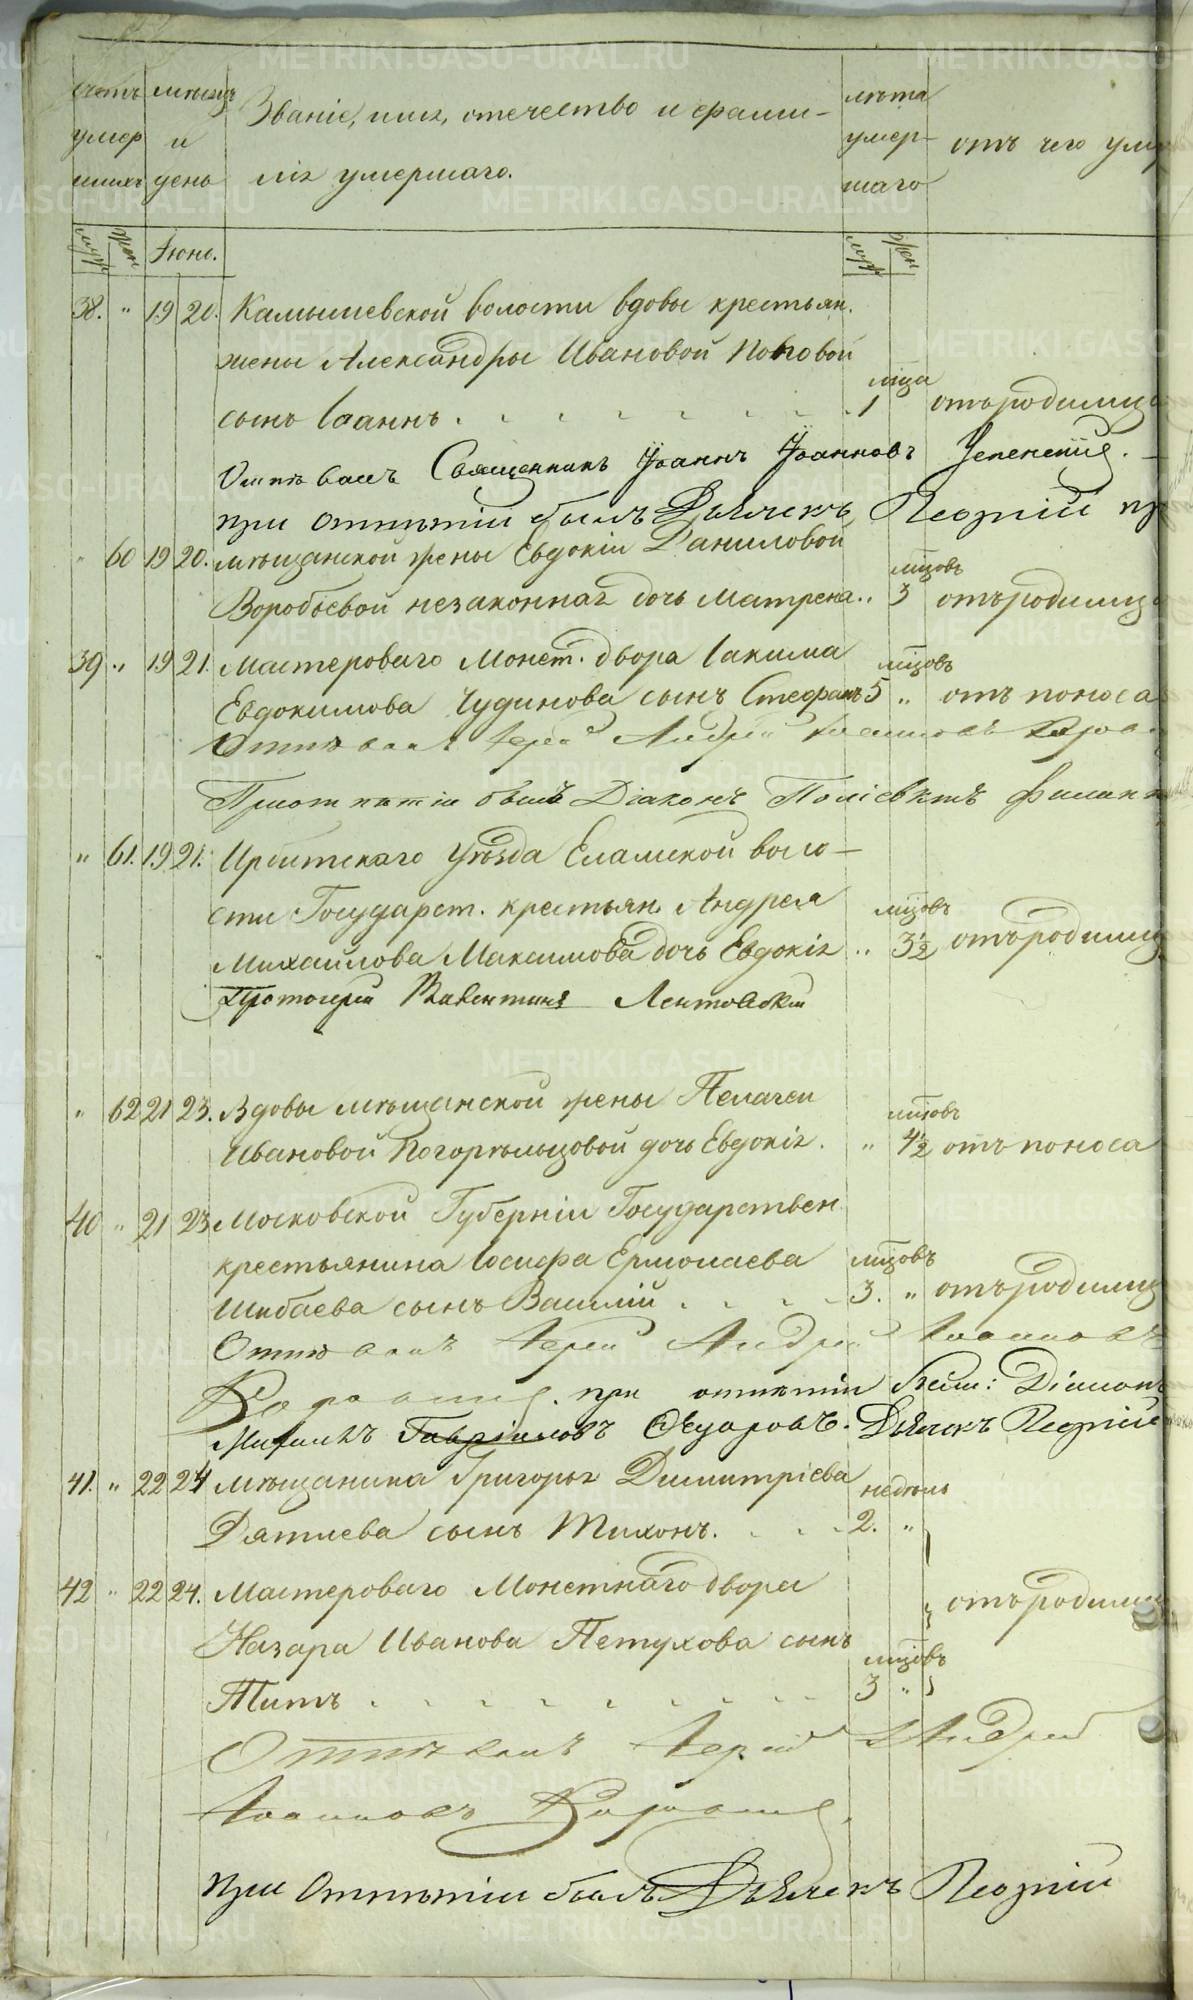 Счетъ умер шихъ
мѣсяцъ и день
Званіе, имя, отечество и фами-
лія умершаго.
лѣта умер- шаго
отъ чего уме
муж жен Іюнь. муж жен
38. " 19 20. Камышевской волости вдовы крестьян.
жены Александры Ивановой Поповой
сынъ Іоаннъ. мѣсца 1 отъ родимца
Отпѣвалъ Священникъ Іоаннъ Іоанновъ Успенскій.
при отпѣтіи былъ Дьячекъ Георгій
" 60 19 20. мѣщанской жены Евдокіи Даниловой
Воробьевой незаконная дочь Матрена " мсцовъ 3 отъ родимца
39 " 19 21. Мастероваго Монет. двора Іакима
Евдокимова Чудинова сынъ Стефанъ мсцовъ 5 " отъ поноса
Отпѣвалъ Іерей Андрей Іоанновъ
При отпѣтіи былъ Діаконъ Поліевктъ
" 61. 19 21. Ирбитскаго Уѣзда Еламской воло-
сти Государст. крестьян. Андрея
Михайлова Максимова дочь Евдокія " мсцовъ 3½ отъ родимц
Протоіерей Валентинъ Лентовскій
" 62 21 23. Вдовы мѣщанской жены Пелагеи
Ивановой Погорѣльцовой дочь Евдокія. " мсцовъ 4½ отъ поноса
40 " 21 23 Московской Губерніи Государствен
крестьянина Іосифа Ермолаева
Шибаева сынъ Василій мсцовъ 3. " отъ родимц
Отпѣвалъ Іерей Андрей Іоанновъ
при отпѣтіи были: Діаконъ
Михаилъ Гавріиловъ Дьячекъ Георгій
41. " 22 24 мѣщанина Григорья Димитріева
Дятлева сынъ Тихонъ. недѣль 2. "
42 " 22 24. Мастероваго Монетнаго двора отъ родимц
Назара Иванова Петухова сынъ
Титъ мсцовъ 3 "
Отпѣвалъ Іерей Андрей
Іоанновъ
при отпѣтіи былъ Дьячекъ Георгій
METRIKI.GASO-URAL.RU